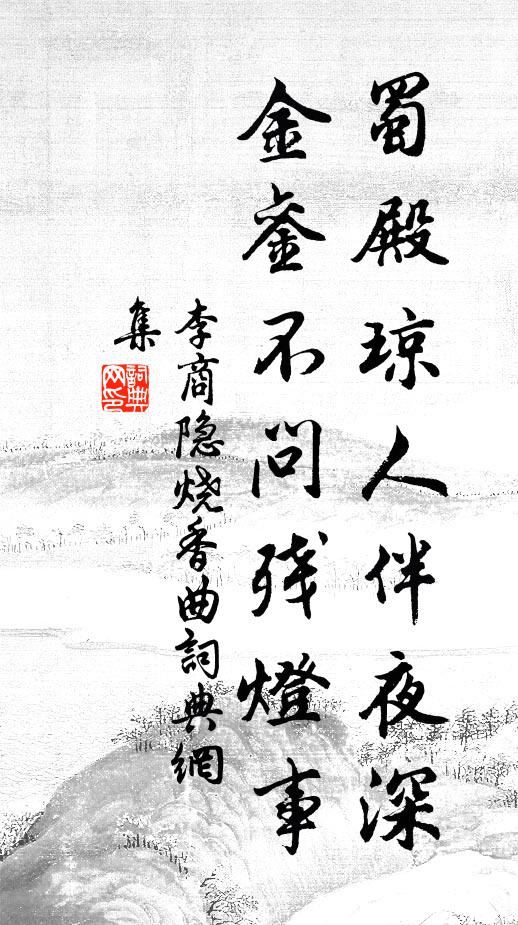 蜀殿琼人伴夜深
金銮不问残燈事
李商隐烧香曲詞典網
集
詞典
网印